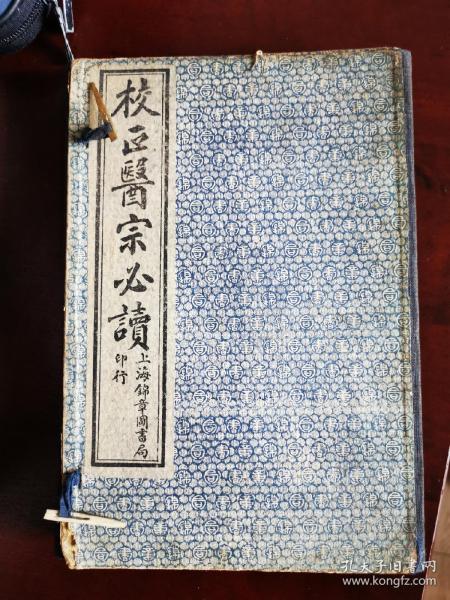 校正醫宗必讀
上海錦章圖書局
印行
孔夫子旧书网
www.kongfz.com